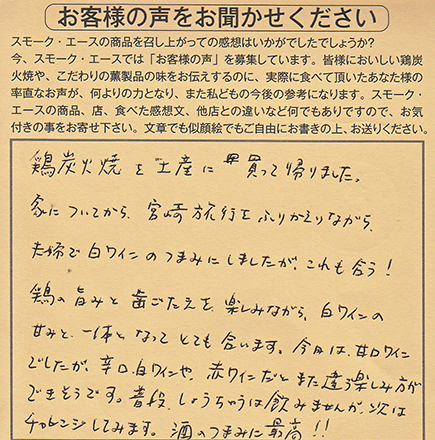 お客様の声をお聞かせください
スモーク・エースの商品を召し上がっての感想はいかがでしたでしょうか?
今、スモーク・エースでは「お客様の声」を募集しています。皆様においしい鶏炭
火焼や、こだわりの薫製品の味をお伝えするのに、実際に食べて頂いたあなた様の
率直なお声が、何よりの力となり、また私どもの今後の参考になります。スモーク・
エースの商品、店、食べた感想文、他店との違いなど何でもありですので、お気
付きの事をお寄せ下さい。文章でも似顔絵でもご自由にお書きの上、お送りください。
鶏炭火焼を土産に買って帰りました。
家についてから、宮崎旅行をふりかえりながら、
夫婦で白ワインのつまみにしましたが、これも合う!
鶏の旨みと歯ごたえを、楽しみながら、白ワインの
甘みと、一体となってとても合います。今回は、甘口ワイン
でしたが、辛口白ワインや、赤ワインだとまた違う楽しみ方が
できそうです。普段、しょうちゅうは飲みませんが、次は
チャレンジしてみます。酒のつまみに最高!!